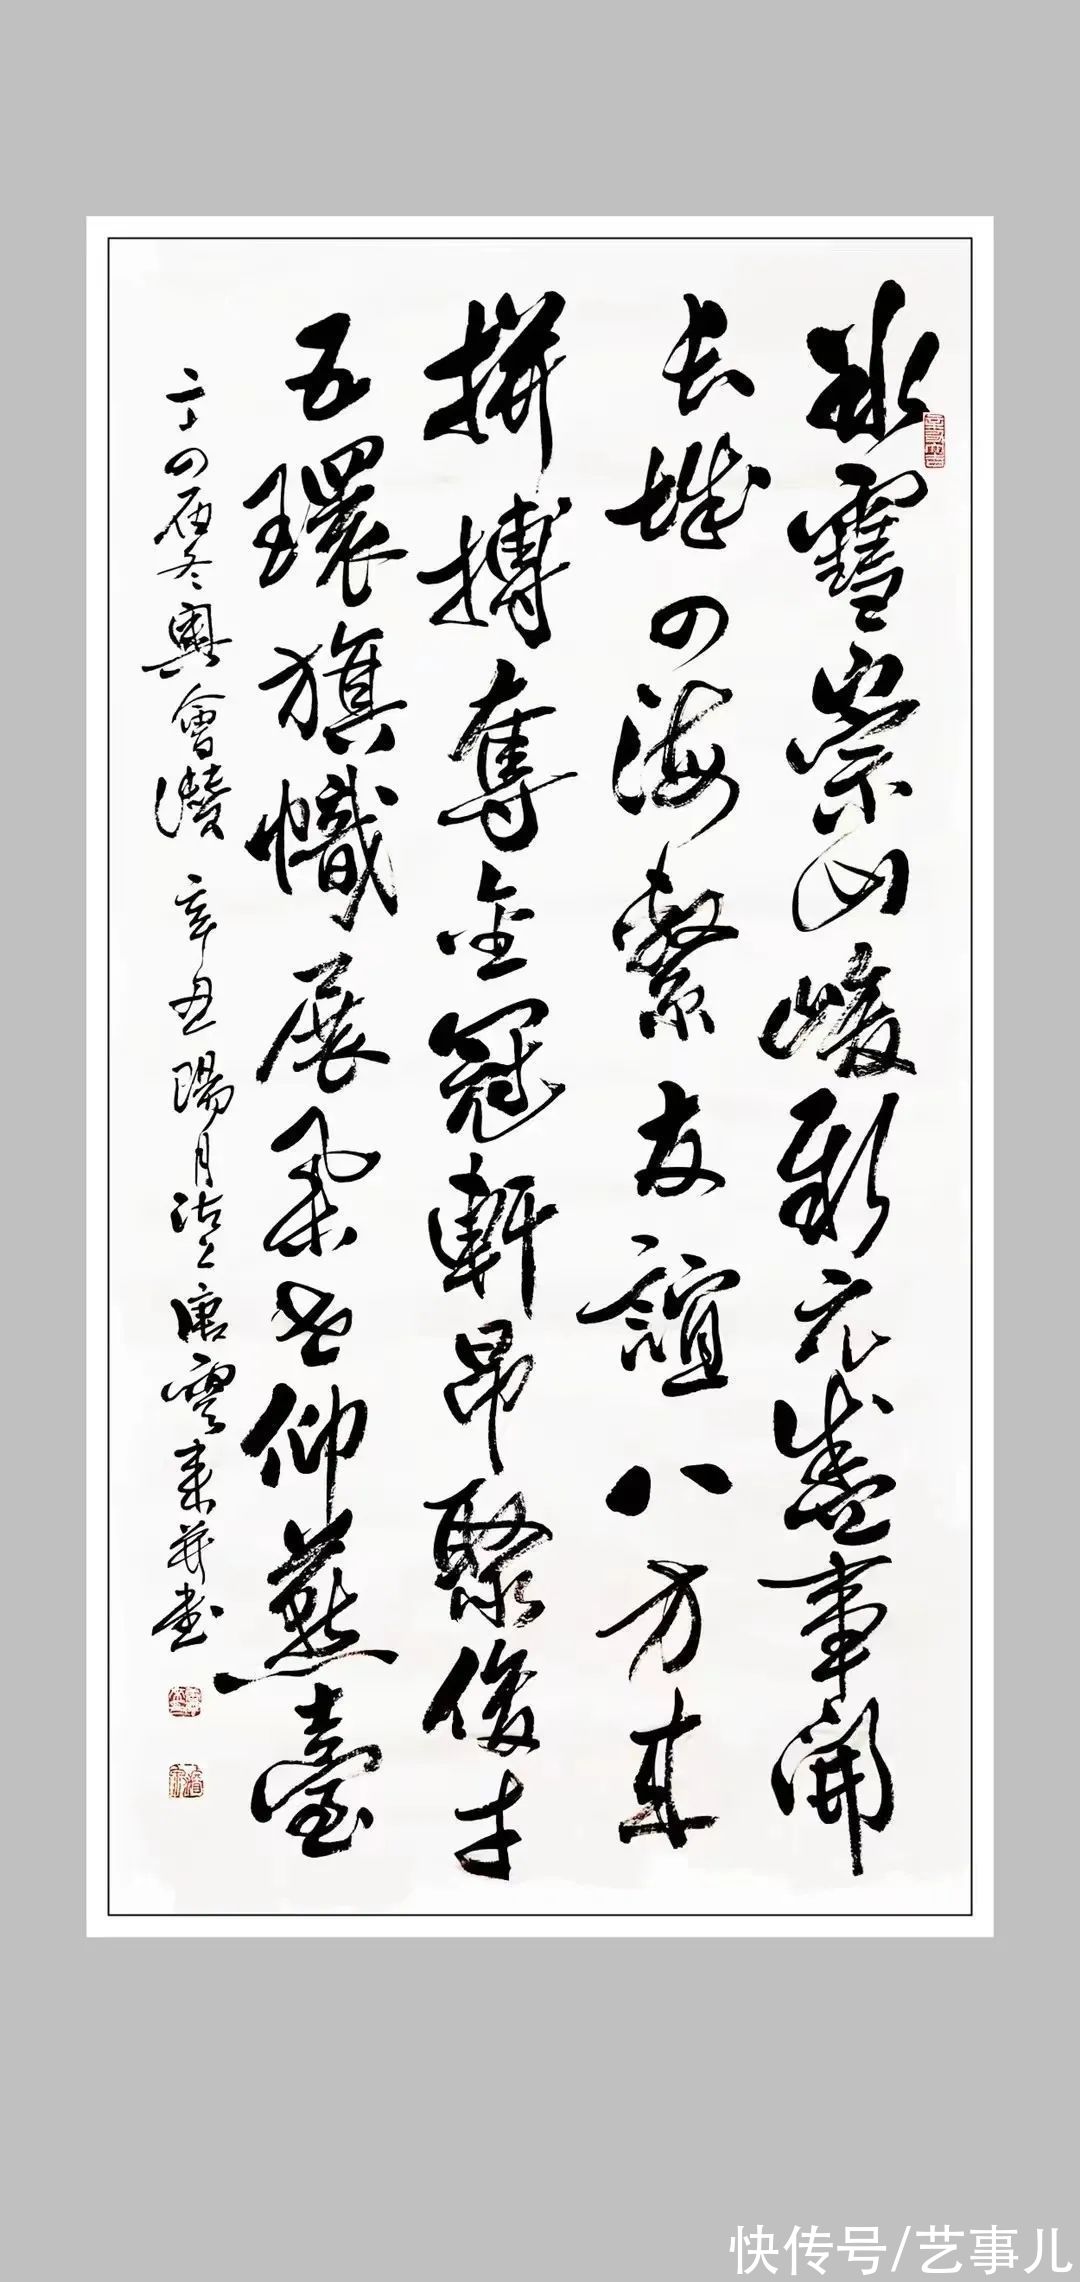 冰雪崇山峻新元盛事開
长城四海繫友誼八方来
拼搏奪金冠軒昂聚俊才
五環旗幟展舉世仰燕臺
二十四届冬奥會讚 辛丑陽月沽上唐雲来并書
快传号/艺事儿